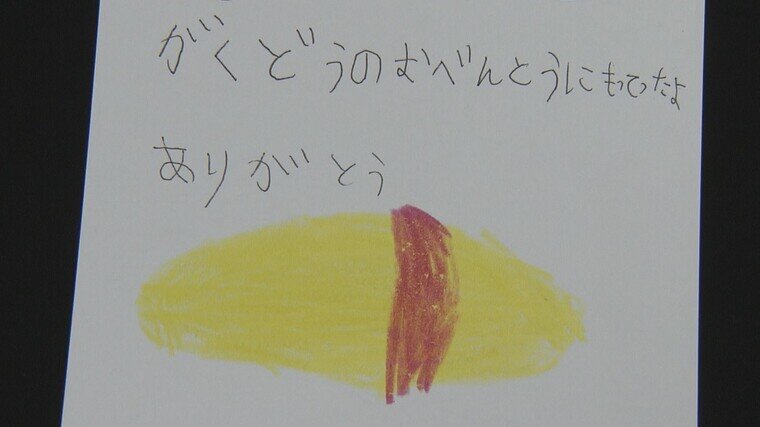 がくどうのむべんとうにもってったよ
ありがとう